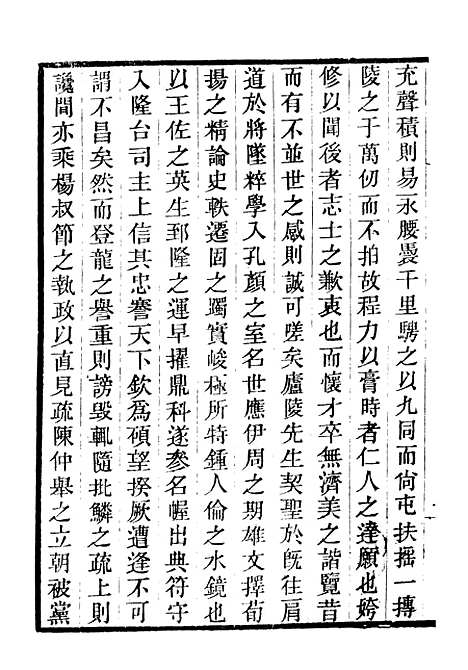 充聲積則易永腰褭千里騁之以九同而尙屯扶搖一摶
陵之于萬仞而不拍故程力以膏時者仁人之達願也姱
修以聞後者志士之歉衷也而懷才卒無濟美之諧覽昔
而有不並世之感則誠可嗟矣廬陵先生契聖於旣往肩
道於將墜粹學入孔顏之室名世應伊周之期雄文擇荀
揚之精論史軼遷固之躅實峻極所特鍾人倫之水鏡也
以王佐之英生郅隆之運早擢鼎科遂參名幄出典符守
入隆台司主上信其忠謇天下欽爲碩望揆厥遭逢不可
謂不昌矣然而登龍之譽重則謗毀輒隨批鱗之疏上則
讒間亦乘楊叔節之執政以直見疏陳仲舉之立朝被黨